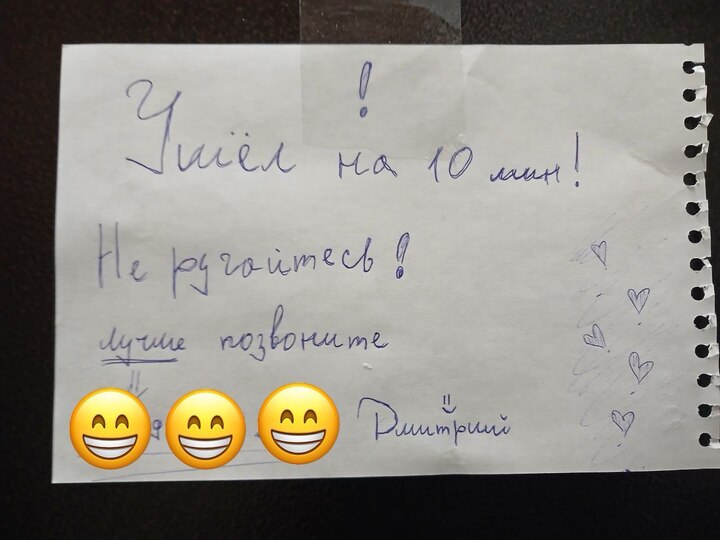 !
Ушёл на 10 мин!
Не ругайтесь!
лучше позвоните
Дмитрий